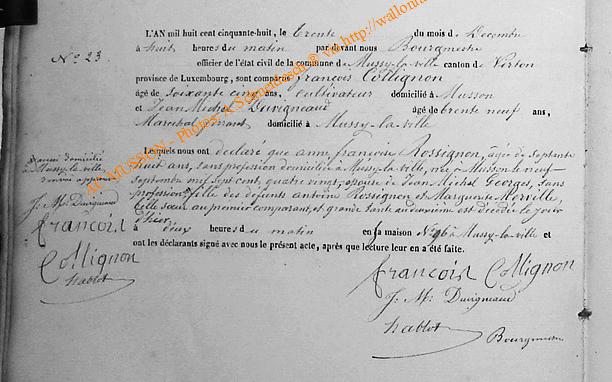 N° 23
L'AN mil huit cent cinquante-huit, le trente du mois de Décembre
à huit heures du matin par devant nous Bourgmestre
officier de l'état civil de la commune de Mussy-la-ville canton de Virton
province de Luxembourg, sont comparus françois Collignon
âgé de Soixante cinq ans, Cultivateur domicilié à Musson
et Jean Michel Duvigneaud âgé de trente neuf ans,
Marechal ferrant domicilié à Mussy-la-ville
Lesquels nous ont déclaré que anne françoise Rossignon, agée de Septante
huit ans, sans profession domiciliée à Mussy-la-ville, née à Musson le neuf
Septembre mil Sept cent quatre vingt, epouse de Jean Michel Georges, sans
profession, fille des défunts antoine Rossignon et Marguerite Merville,
belle sœur au premier comparant, et grande tante au deuxieme est décédée le jour
d'hier
à deux heures du matin en sa maison N° 96 à Mussy-la-ville et
ont les déclarants signé avec nous le présent acte, après que lecture leur en a été faite.
françois Collignon
J. M. Duvigneaud
hablot
Bourgmestre
domicilié
à Mussy-la-ville
J. M. Duvigneaud
françois
Collignon
hablot
AC MUSSON - Photos: A Schmendesch @ via http://wallonia